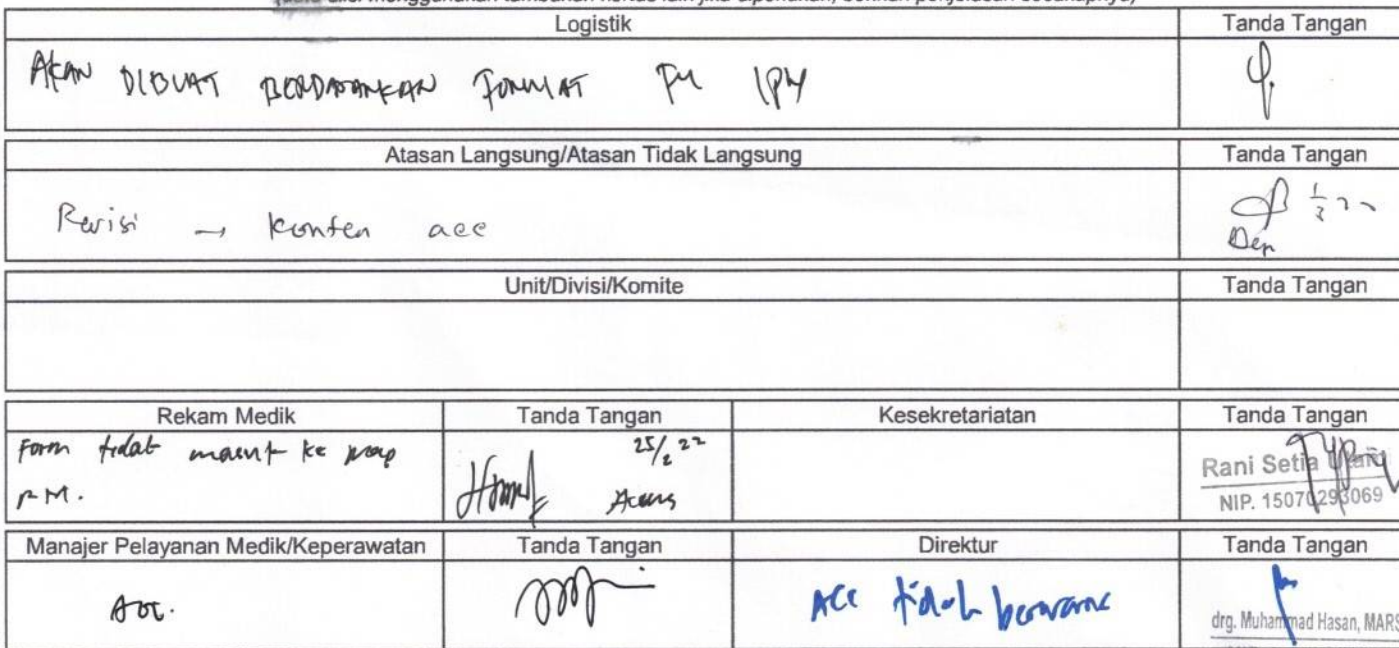 Logistik Tanda Tangan
AKAN DIBUAT BERDASARKAN FORMAT
Atasan Langsung/Atasan Tidak Langsung Tanda Tangan
Revisi → konten acc
Unit/Divisi/Komite Tanda Tangan
Rekam Medik Tanda Tangan Kesekretariatan Tanda Tangan
Form tidak masuk ke map 25/2 22 Rani Setia
RM. NIP. 15070293069
Manajer Pelayanan Medik/Keperawatan Tanda Tangan Direktur Tanda Tangan
Acc. ACC tidak berwarna drg. Muhammad Hasan, MARS